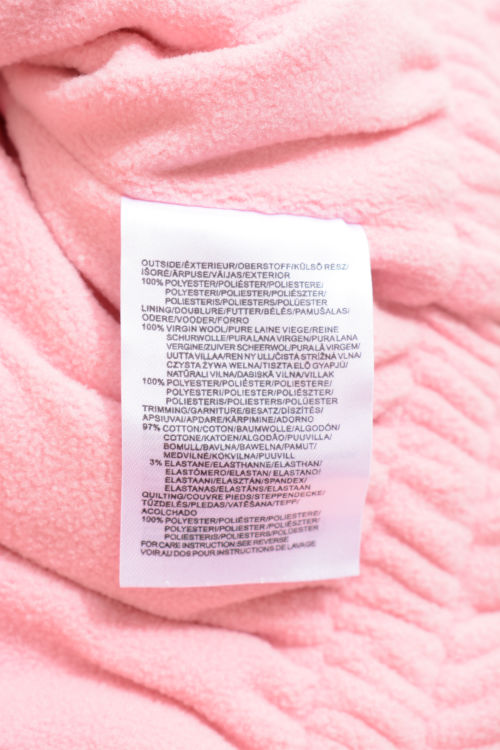 OUTSIDE/ÉXTERIEUR/OBERSTOFF/KÜLSŐ RÉSZ/
IŠORĖ/ĀRPUSE/VÄIJAS/EXTERIOR
100% POLYESTER/POLIÉSTER/POLIESTERE/
POLYESTERI/POLYESTER/POLIÉSZTER/
POLIESTERIS/POLIESTERS/POLÜESTER
LINING/DOUBLURE/FUTTER/BÉLÉS/PAMUŠALAS/
ODERE/VOODER/FORRO
100% VIRGIN WOOL/PURE LAINE VIEGE/REINE
SCHURWOLLE/PURALANA VIRGEN/PURA LANA
VERGINE/ZUIVER SCHEERWOL/PURALÃ VIRGEM/
UUTTA VILLAA/REN NY ULL/ČISTÁ STRIŽNÁ VLNA/
CZYSTA ŻYWA WEŁNA/TISZTA ELŐ GYAPJÚ/
NATŪRALI VILNA/DABISKĀ VILNA/VILLAK
100% POLYESTER/POLIÉSTER/POLIESTERE/
POLYESTERI/POLYESTER/POLIÉSZTER/
POLIESTERIS/POLIESTERS/POLÜESTER
TRIMMING/GARNITURE/BESATZ/DÍSZÍTÉS/
APSIUVAI/APDARE/KÄRPIMINE/ADORNO
97% COTTON/COTON/BAUMWOLLE/ALGODÓN/
COTONE/KATOEN/ALGODÃO/PUUVILLA/
BOMULL/BAVLNA/BAWEŁNA/PAMUT/
MEDVILNĖ/KOKVILNA/PUUVILL
3% ELASTANE/ELASTHANNE/ELASTHAN/
ELASTÓMERO/ELASTAN/ELASTANO/
ELASTAANI/ELASZTÁN/SPANDEX/
ELASTANAS/ELASTĀNS/ELASTAAN
QUILTING/COUVRE PIEDS/STEPPENDECKE/
TŰZDELÉS/PLEDAS/VATĒŠANA/TEPP/
ACOLCHADO
100% POLYESTER/POLIÉSTER/POLIESTERE/
POLYESTERI/POLYESTER/POLIÉSZTER/
POLIESTERIS/POLIESTERS/POLÜESTER
FOR CARE INSTRUCTION SEE REVERSE
VOIR AU DOS POUR INSTRUCTIONS DE LAVAGE